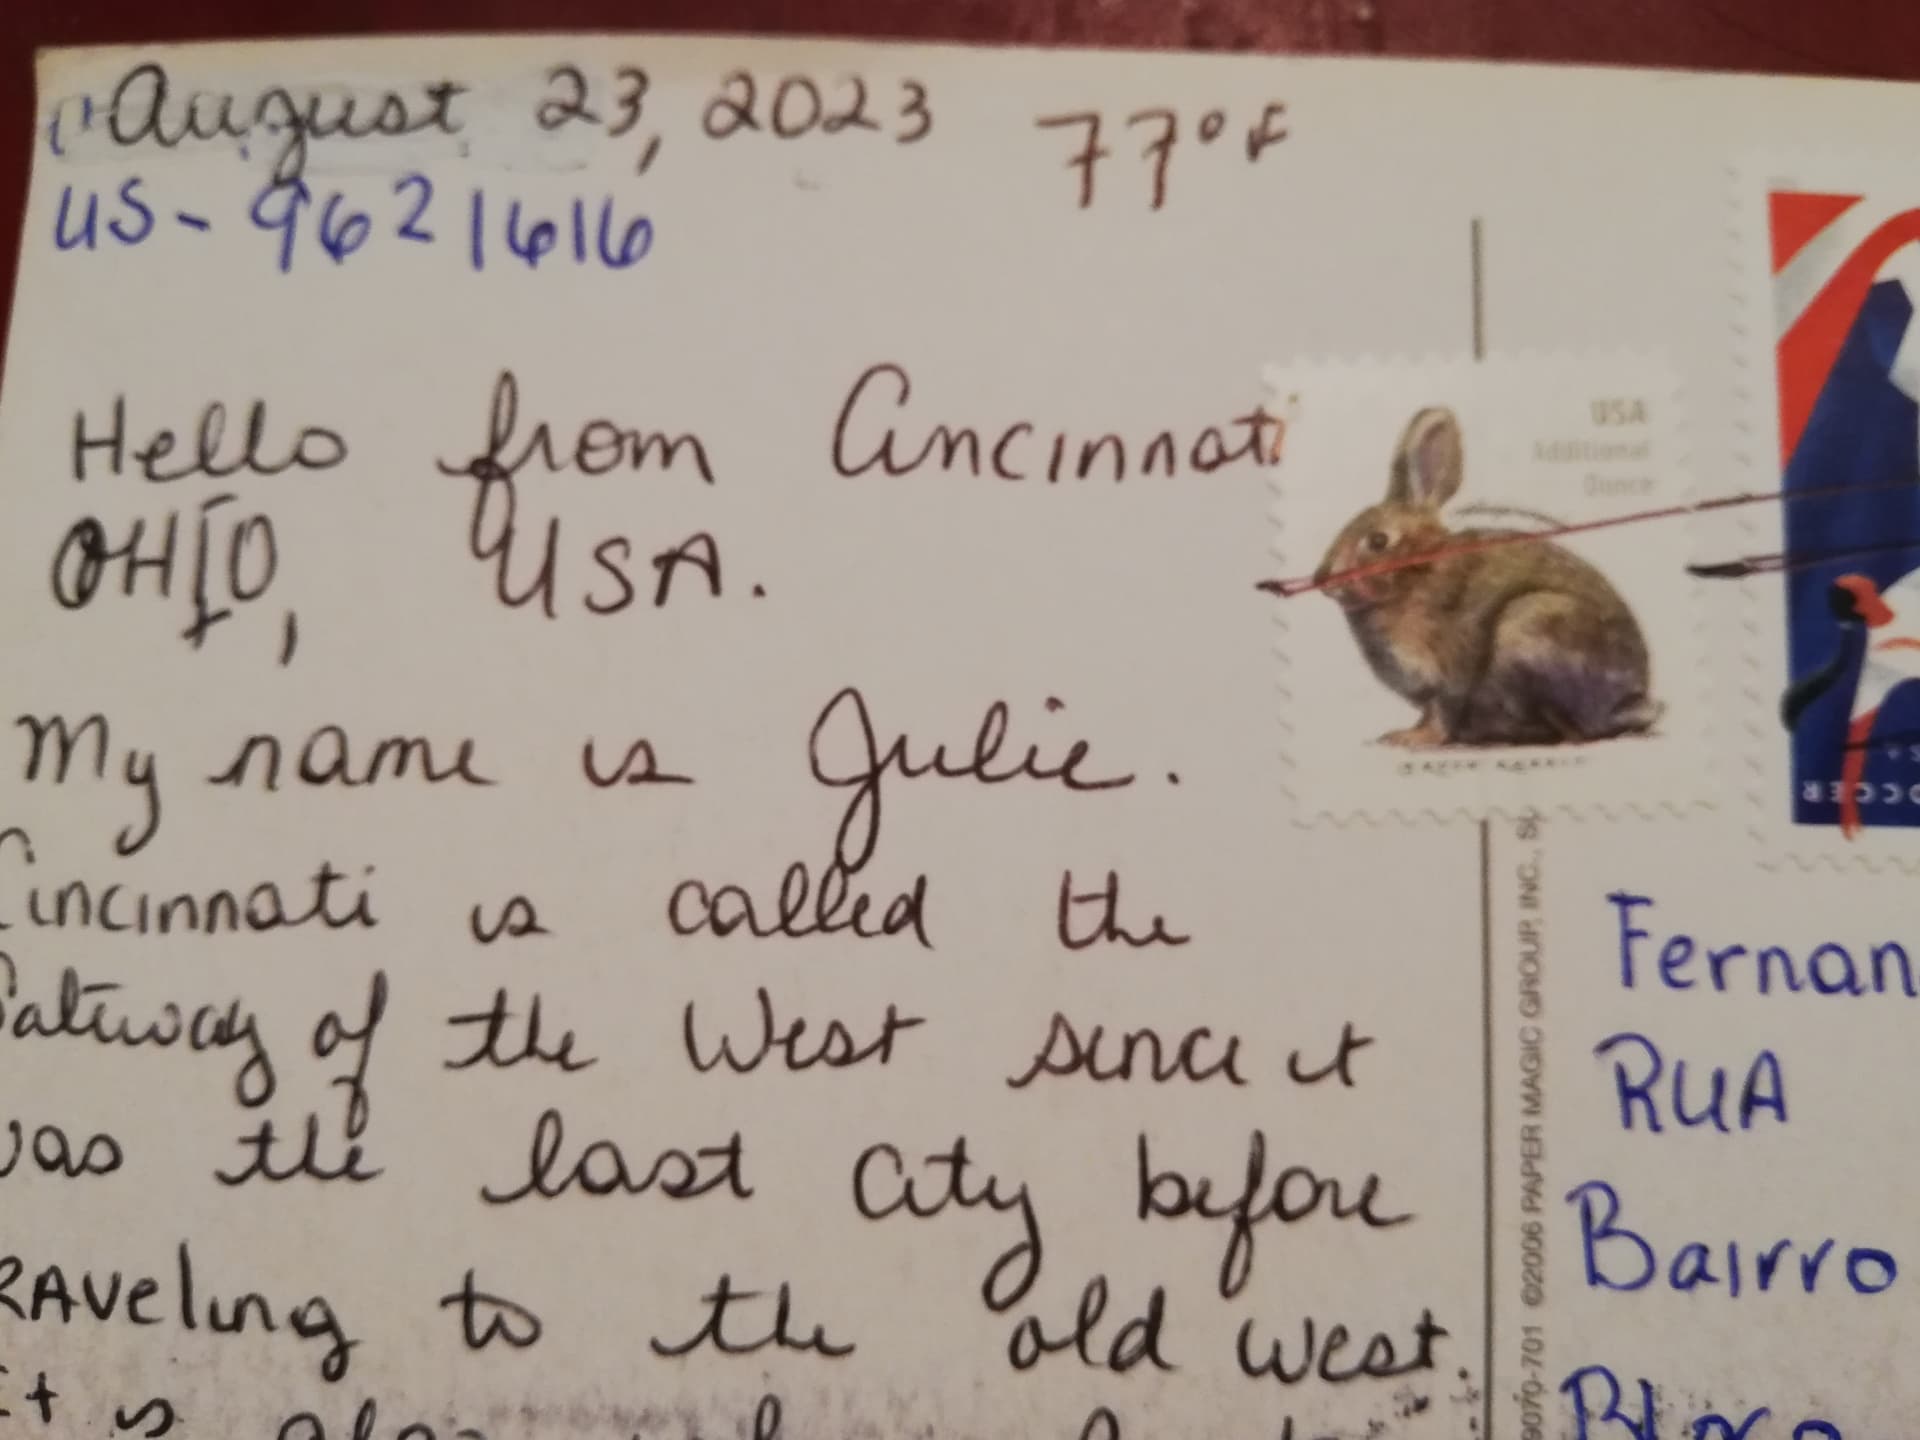 August 23, 2023 77°F
US-9621616
Hello from Cincinnati
OHIO, USA.
My name is Julie.
Cincinnati is called the
Gateway of the West since it
was the last city before
TRAVeling to the old west.
It is also
USA
Additional
Ounce
SOCCER
Fernan
RUA
Bairro
9070-701 ©2006 PAPER MAGIC GROUP, INC.,